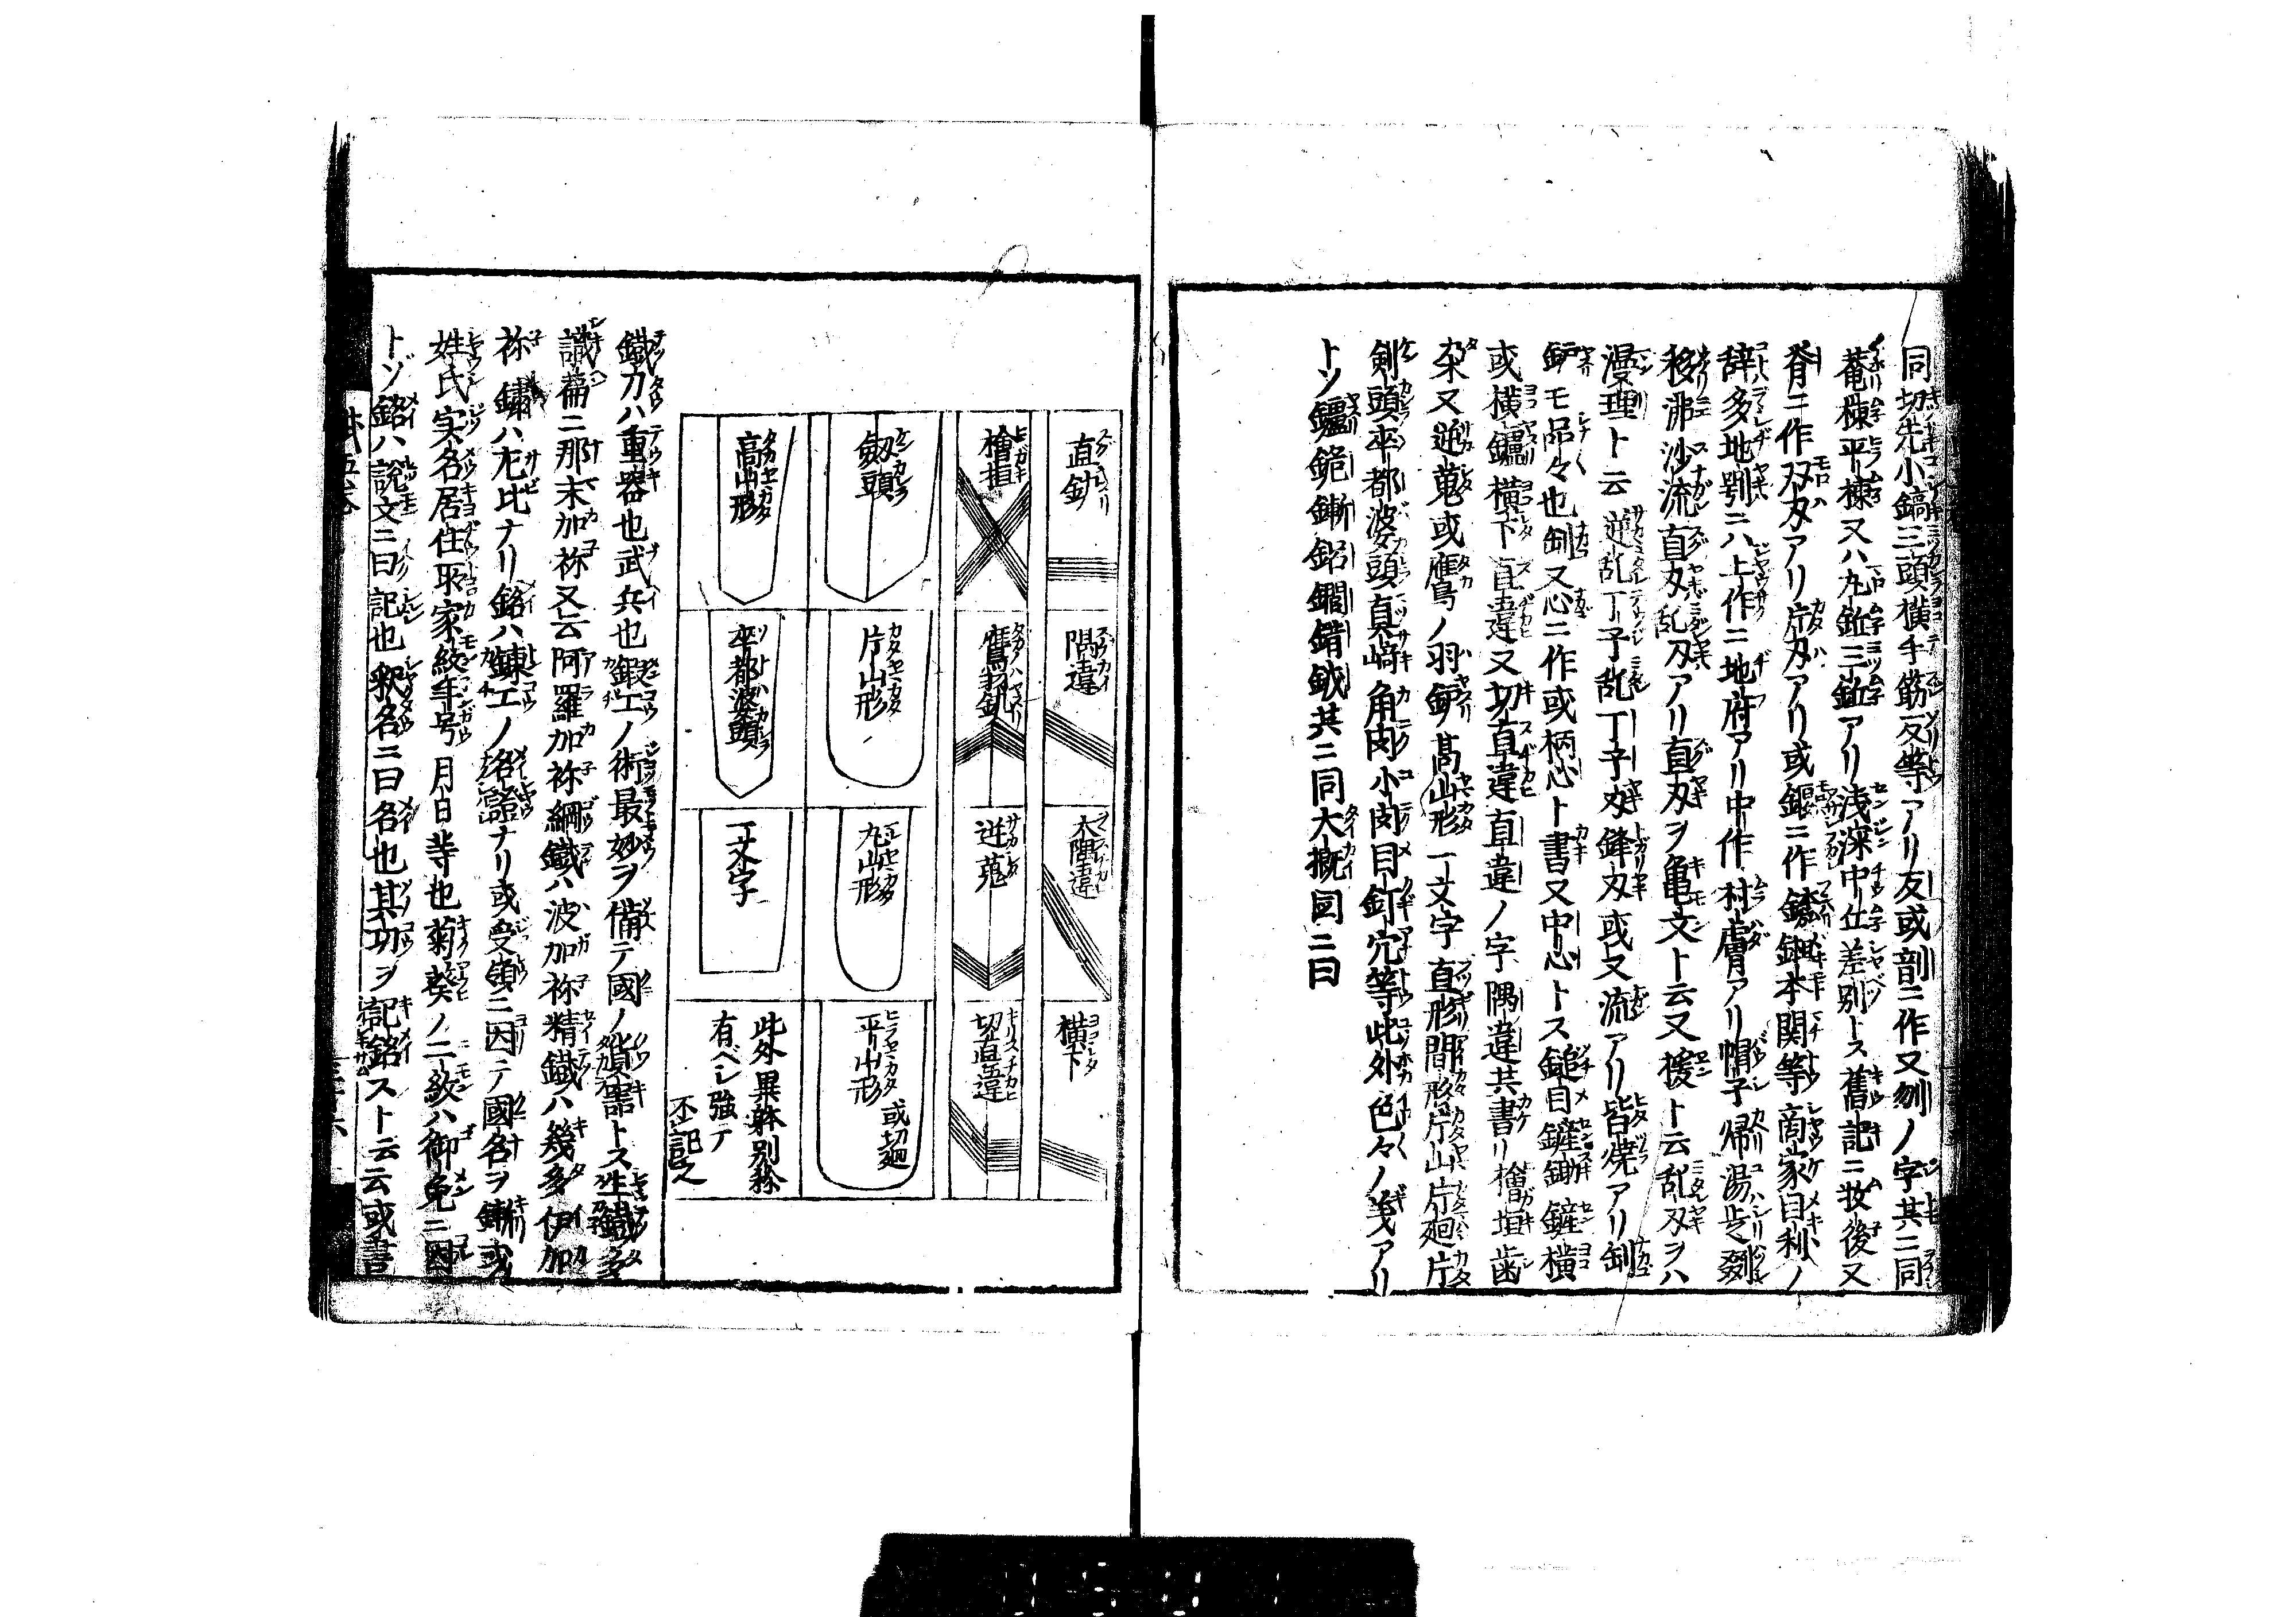 同切先小鎬三頭横手筋反等アリ反或剖ニ作又刎ノ字其ニ同
菴棟平棟又ハ丸𨦻三𨦻アリ浅深中仕差別トス舊記ニ妆後又
脊ニ作刄アリ片刃アリ或鎺ニ作本関等商家目利ノ
辞多地ニハ上作ニ地府アリ中作村膚アリ帽子帰湯走
移沸沙流直刄乱刄アリ直刄ヲ亀文ト云又ト云乱刄ヲハ
漫理ト云逆乱丁子乱丁子刄鋒刄或又流アリ皆焼アリ釧
鈩モ品々也釧又心ニ作或柄心ト書又中心トス鎚目鏟鋤鏟横
或横鑢横下直違又切直違直違ノ字隅違共書リ檜垣歯
朶又逆蒐或鷹ノ羽鈩髙山形一文字直形間形片山片廻片
剣頭卒都婆頭真﨑角肉小肉目釘穴等此外色々ノ義アリ
トソ鑢其ニ同大概図ニ曰
直釻
隅違
大隅違
横下
檜垣
鷹羽釻
逆蒐
切直違
劔頭
片山形
丸山形
平山形 或切廻
高山形
卒都婆頭
一文字
此外異躰別称
有ベシ強テ
不記之
鐵刀ハ重器也武兵也鍜工ノ術最妙ヲ備テ國ノ貲トス生鐵多
識篇ニ那末加祢又云阿羅加祢綱鐵ハ波加祢精鐵ハ幾多伊加
祢鏽ハ左比ナリ銘ハ鍊工ノ證ナリ或受領ニ因テ國名ヲ或
姓氏実名居住所家紋年号月日等也菊葵ノ二紋ハ御免ニ因
トゾ銘ハ說文ニ曰記也釈名ニ曰名也其功ヲ記銘スト云云或書